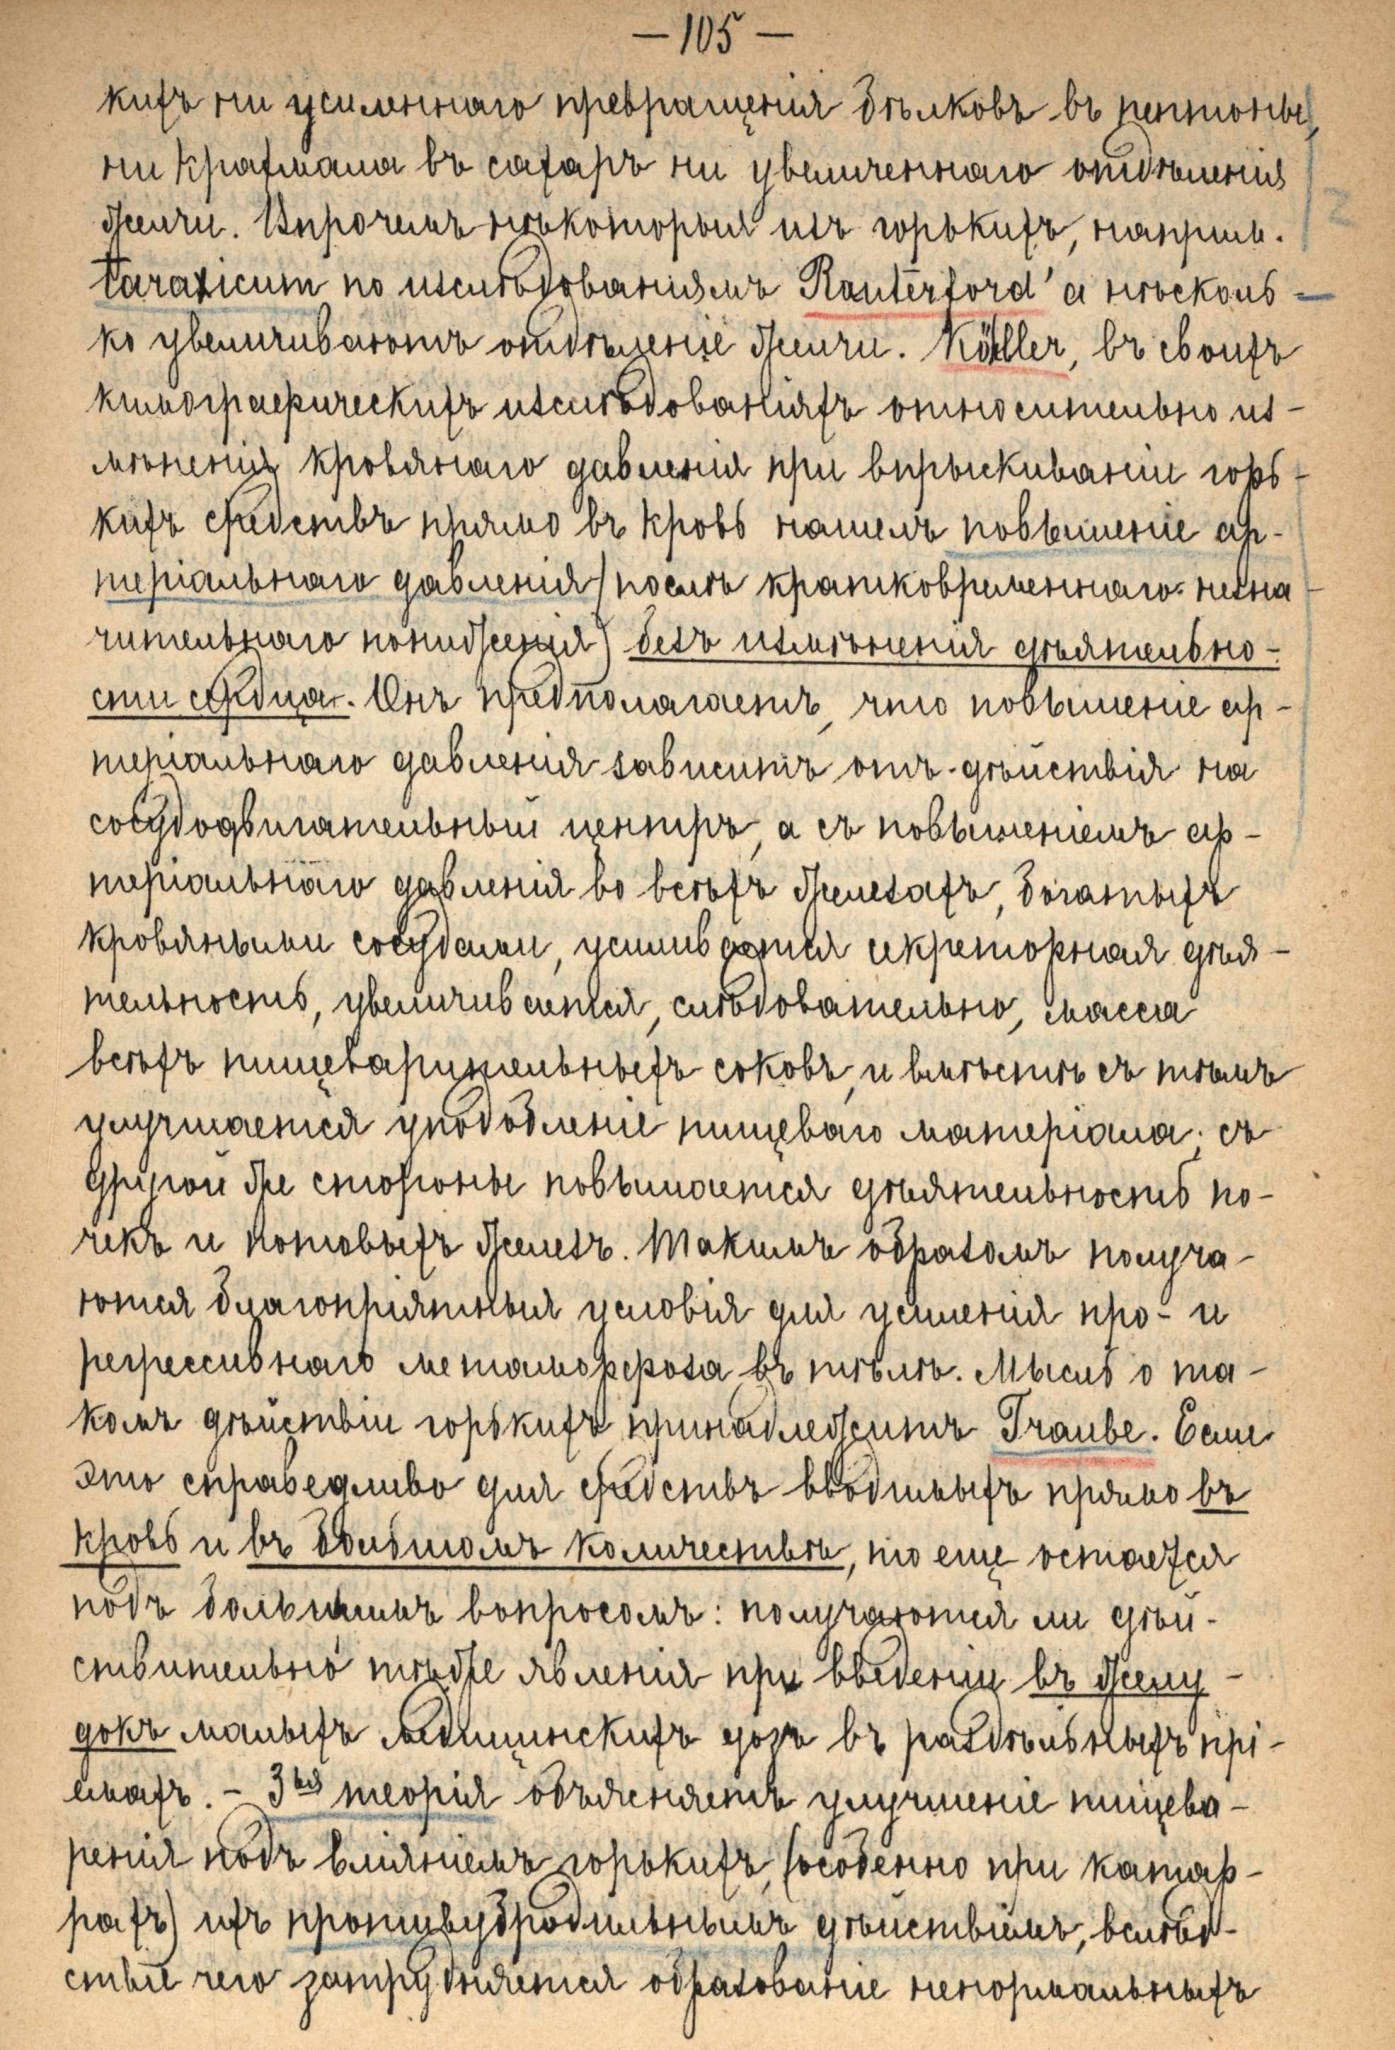 — 105 —
кихъ ни усиленнаго превращенія бѣлковъ въ пептоны,
ни крахмала въ сахаръ ни увеличеннаго отдѣленія
желчи. Впрочемъ нѣкоторыя изъ горькихъ, наприм.
taraxicum по изслѣдованіямъ Rauterford'а нѣсколь-
ко увеличиваютъ отдѣленіе желчи. Köhler, въ своихъ
кимографическихъ изслѣдованіяхъ относительно из-
мѣненія кровянаго давленія при впрыскиваніи горь-
кихъ средствъ прямо въ кровь нашелъ повышеніе ар-
теріальнаго давленія (послѣ кратковременнаго незна-
чительнаго пониженія) безъ измѣненія дѣятельно-
сти сердца. Онъ предполагаетъ, что повышеніе ар-
теріальнаго давленія зависитъ отъ дѣйствія на
сосудодвигательный центръ, а съ повышеніемъ ар-
теріальнаго давленія во всѣхъ железахъ, богатыхъ
кровяными сосудами, усиливается секреторная дѣя-
тельность, увеличивается, слѣдовательно, масса
всѣхъ пищеварительныхъ соковъ, и вмѣстѣ съ тѣмъ
улучшается уподобленіе пищеваго матеріала; съ
другой же стороны повышается дѣятельность по-
чекъ и потовыхъ железъ. Такимъ образомъ получа-
ются благопріятныя условія для усиленія про- и
регрессивнаго метаморфоза въ тѣлѣ. Мысль о та-
комъ дѣйствіи горькихъ принадлежитъ Traube. Если
это справедливо для средствъ вводимыхъ прямо въ
кровь и въ большомъ количествѣ, то еще остается
подъ большимъ вопросомъ: получаются ли дѣй-
ствительно тѣже явленія при введеніи въ желу-
докъ малыхъ медицинскихъ дозъ въ раздѣльныхъ прі-
емахъ. – 3ья теорія объясняетъ улучшеніе пищева-
ренія подъ вліяніемъ горькихъ, (особенно при катар-
рахъ) ихъ противубродильнымъ дѣйствіемъ, вслѣд-
ствіе чего затрудняется образованіе ненормальныхъ